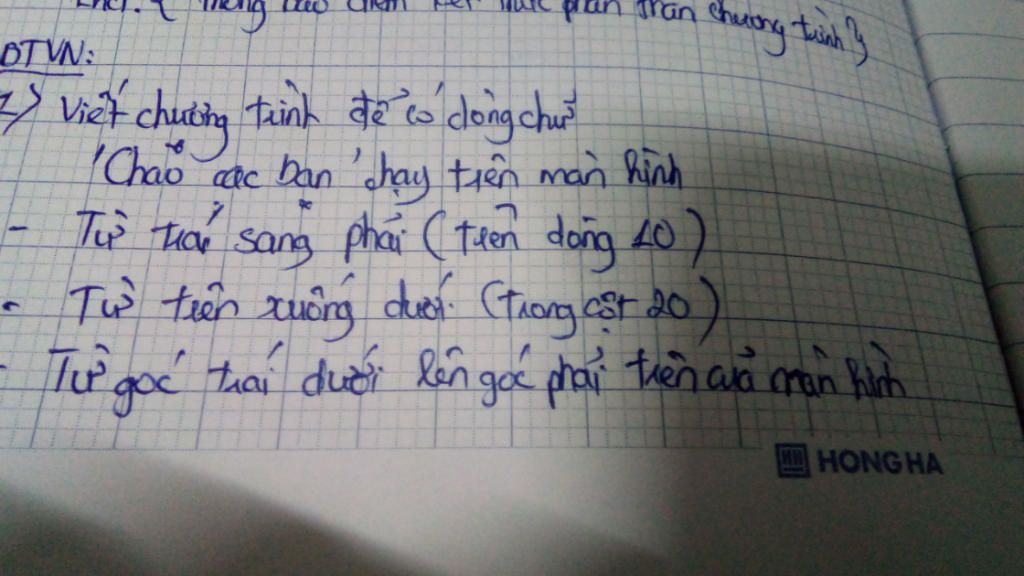 End. { Thông báo cho kết thúc phần thân chương trình }
BTVN:
1) Viết chương trình để có dòng chữ
'Chào các bạn' chạy trên màn hình
- Từ trái sang phải (trên dòng 10)
- Từ trên xuống dưới. (trong cột 20)
- Từ góc trái dưới lên góc phải trên của màn hình
HONG HA